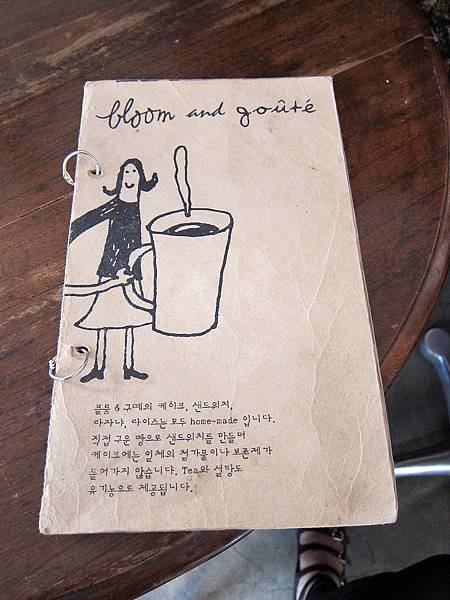 bloom and goûté
블룸 & 구떼의 케이크, 샌드위치,
라자냐, 라이스는 모두 home-made 입니다.
직접 구운 빵으로 샌드위치를 만들며
케이크에는 일체의 첨가물이나 보존제가
들어가지 않습니다. Tea와 설탕도
유기농으로 제공됩니다.